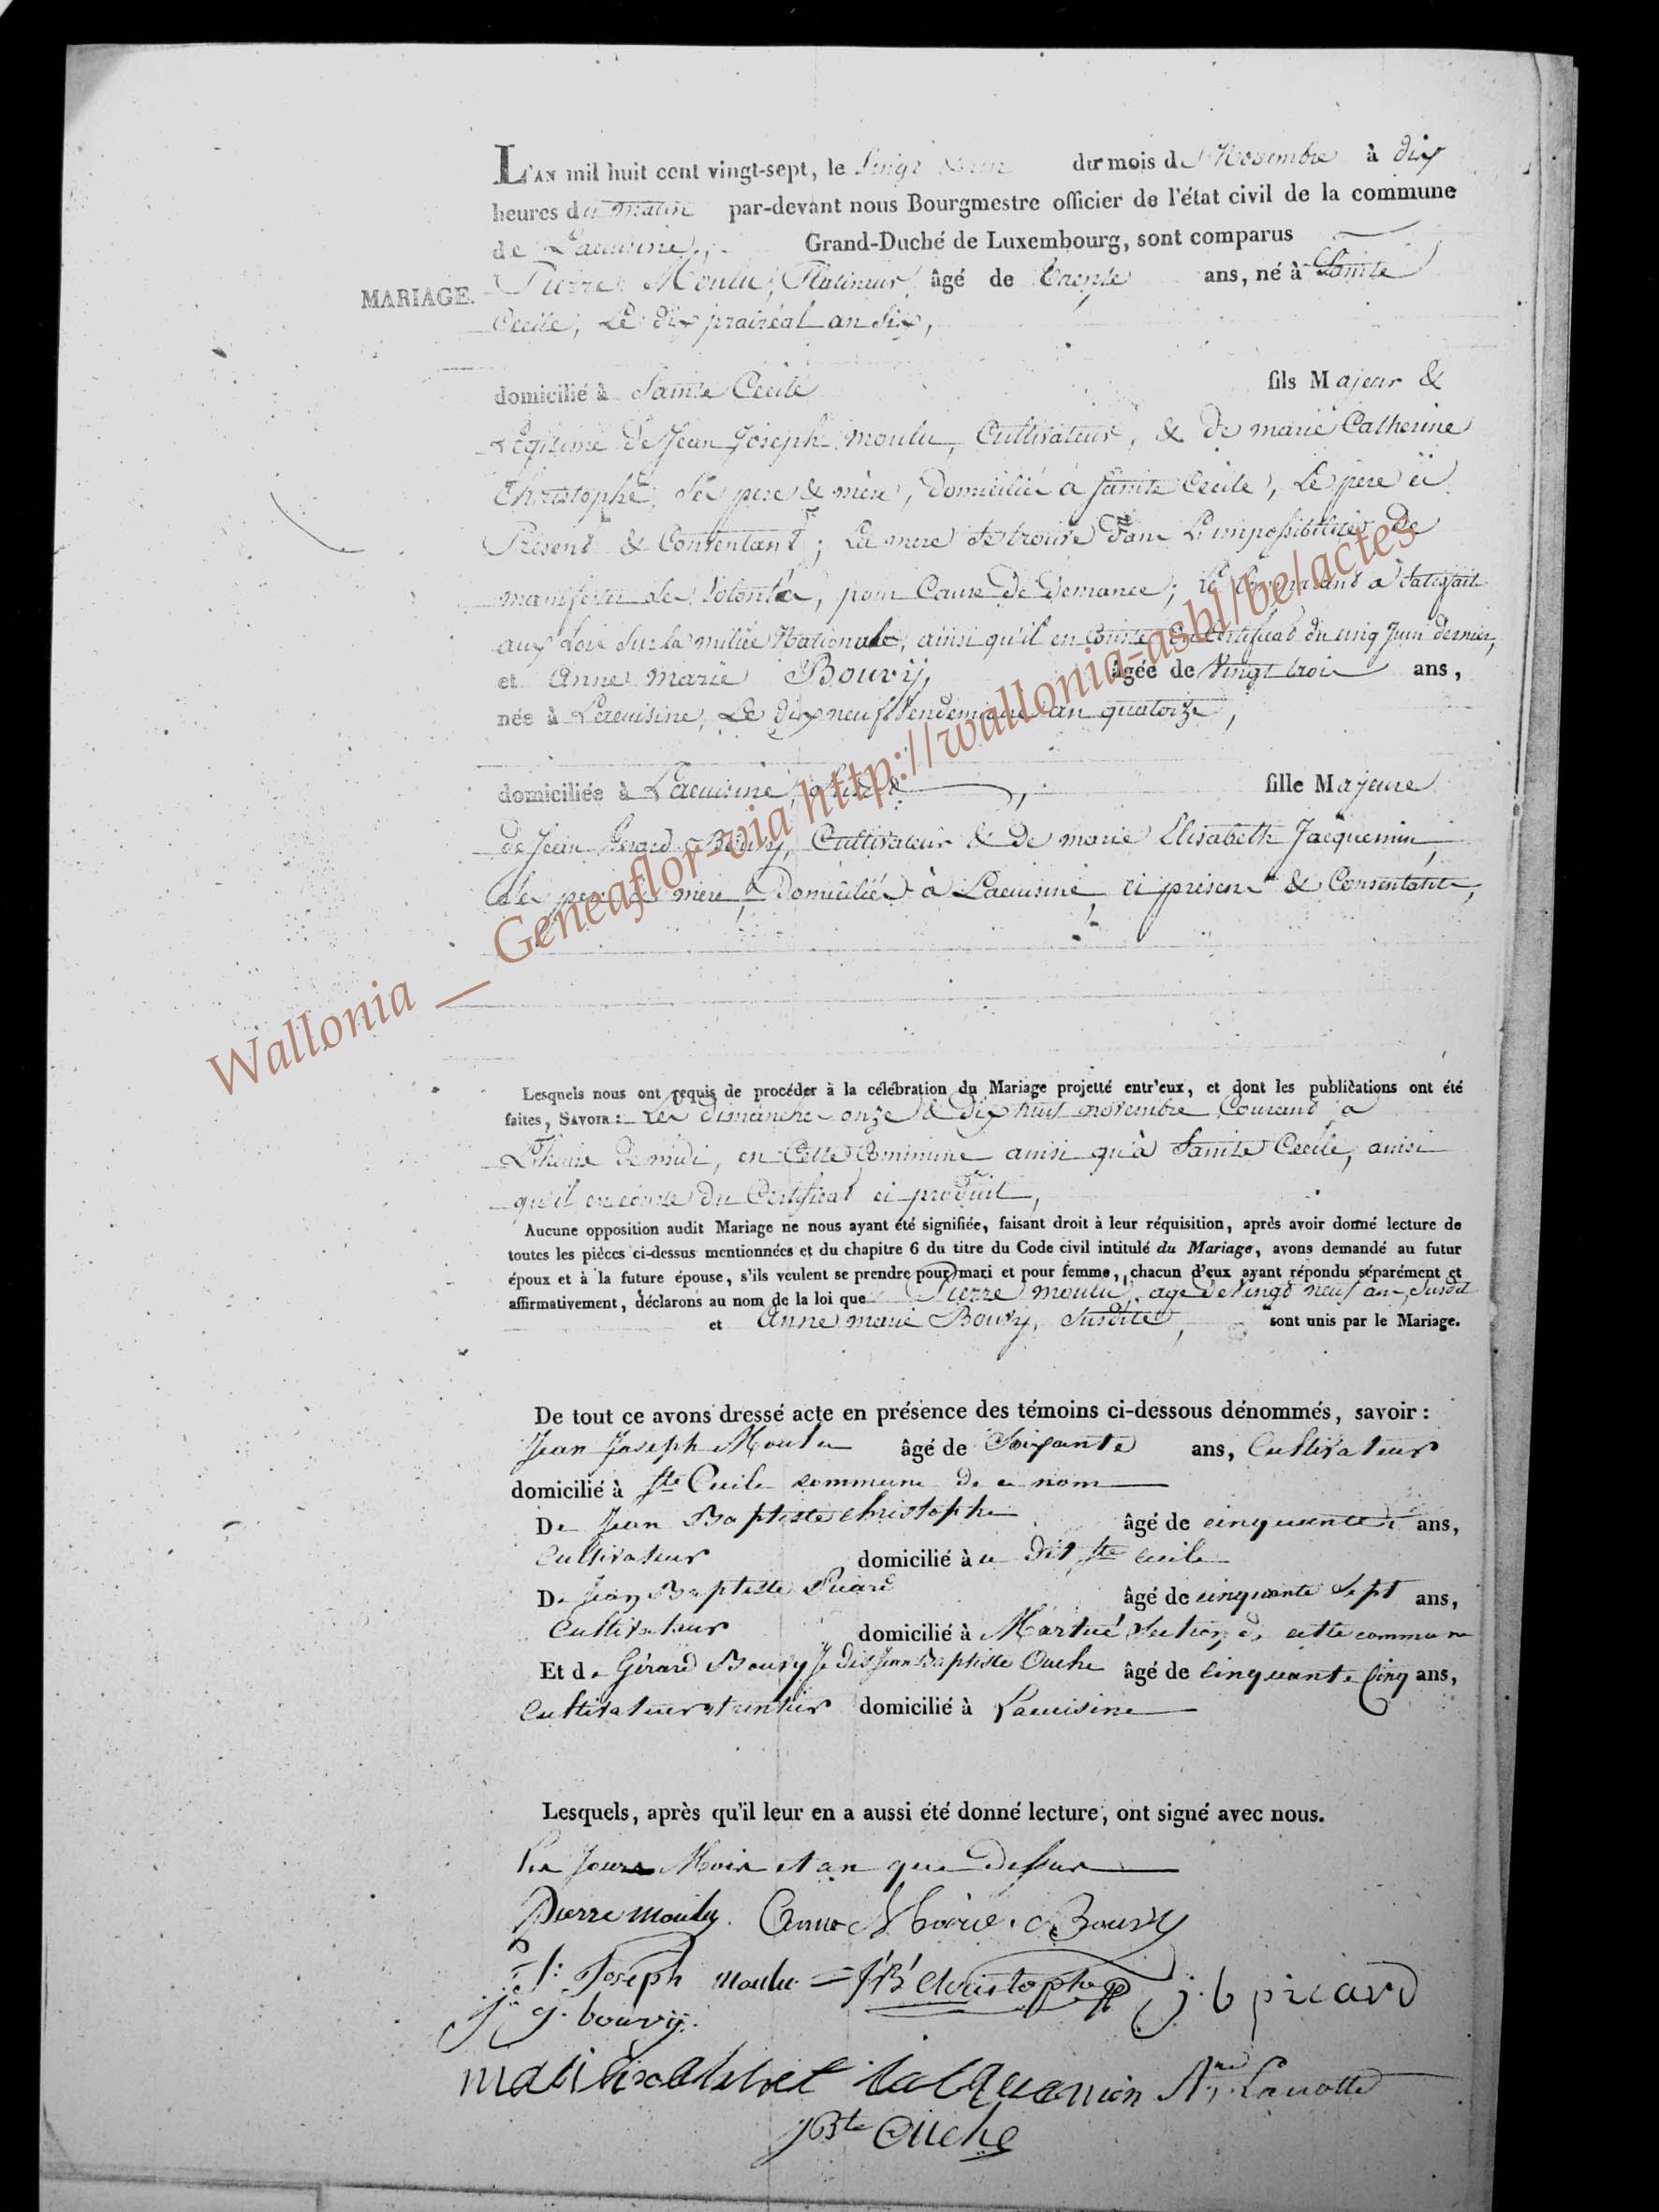 L'AN mil huit cent vingt-sept, le Vingt du mois de Novembre à dix
heures du matin par-devant nous Bourgmestre officier de l'état civil de la commune
de Lacuisine, Grand-Duché de Luxembourg, sont comparus
MARIAGE. Pierre Moulu, Platineur, âgé de trente ans, né à Sainte
Cecile, Le dix prairéal an Six,
domicilié à Sainte Cecile fils Majeur &
Légitime de Jean Joseph moulu, Cultivateur, & de marie Catherine
Christophe, Ses pere & mère, domiciliés à Sainte Cecile, Le pere ci
Présent & Consentant; La mere se trouve dans L'impossibilité de
manifester sa Volonté, pour Cause de demance; le Comparant a Satisfait
aux Lois Sur la milice Nationale, ainsi qu'il en Conste du Certificat du cinq Juin dernier,
et Anne marie Bouvÿ, âgée de Vingt trois ans,
née à Lacuisine, Le dix neuf Vendemiaire an quatorze,
domiciliée à Lacuisine, fille Majeure
de Jean Gerard Bouvy, Cultivateur & de marie Elisabeth Jacquemin,
Ses pere & mere, Domiciliés à Lacuisine, ci présens & Consentants,
Wallonia __ Geneaflor-via http://wallonia-asbl/be/actes
Lesquels nous ont requis de procéder à la célébration du Mariage projetté entr'eux, et dont les publications ont été
faites, SAVOIR: Les dimanches onze & dix huit novembre Courant à
L'heure de midi, en Cette Commune ainsi qu'à Sainte Cecile, ainsi
qu'il en conste du Certificat ci produit,
Aucune opposition audit Mariage ne nous ayant été signifiée, faisant droit à leur réquisition, après avoir donné lecture de
toutes les pièces ci-dessus mentionnées et du chapitre 6 du titre du Code civil intitulé du Mariage, avons demandé au futur
époux et à la future épouse, s'ils veulent se prendre pour mari et pour femme, chacun d'eux ayant répondu séparément et
affirmativement, déclarons au nom de la loi que Pierre moulu, age de Vingt neuf ans, Susdit
et Anne marie Bouvy, Susdite, sont unis par le Mariage.
De tout ce avons dressé acte en présence des témoins ci-dessous dénommés, savoir:
Jean Joseph Moulu âgé de Soixante ans, Cultivateur
domicilié à Ste Cecile commune de ce nom
De Jean Baptiste Christophe âgé de cinquante ans,
Cultivateur domicilié à u dit Ste cecile
De Jean Baptiste Picard âgé de cinquante Sept ans,
Cultivateur domicilié à Martué Section de cette commune
Et de Gérard Bouvy Je dis Jean Baptiste Ouche âgé de Cinquante Cinq ans,
Cultivateur domicilié à Lacuisine
Lesquels, après qu'il leur en a aussi été donné lecture, ont signé avec nous.
Les Jours Mois et an que dessus
Pierre moulu. Anne Marie Bouvy
J: Joseph moulu J B Christophe j. b picard
J g. bouvÿ.
Lanotte
JBte Ouche